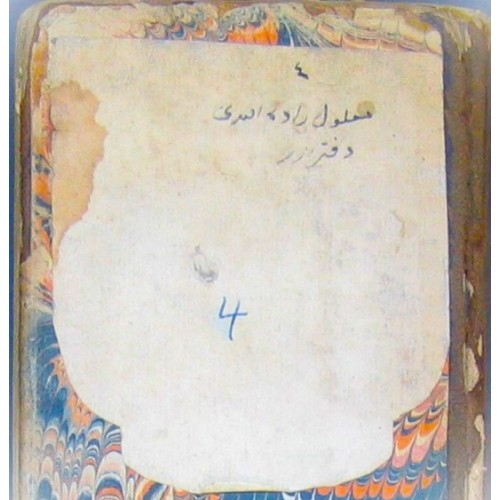 ٤
معلول زاده افندی
دفتریدر
4